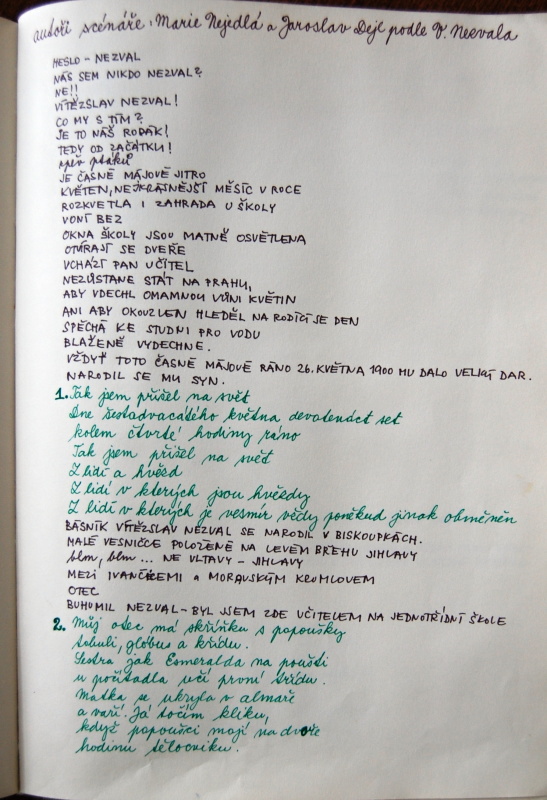 autoři scénáře: Marie Nejedlá a Jaroslav Dejl podle V. Nezvala
HESLO - NEZVAL
NÁS SEM NIKDO NEZVAL?
NE!!
VÍTĚZSLAV NEZVAL!
CO MY S TÍM?
JE TO NÁŠ RODÁK!
TEDY OD ZAČÁTKU!
zpěv ptáků
JE ČASNÉ MÁJOVÉ JITRO
KVĚTEN, NEJKRÁSNĚJŠÍ MĚSÍC V ROCE
ROZKVETLA I ZAHRADA U ŠKOLY
VONÍ BEZ
OKNA ŠKOLY JSOU MATNĚ OSVĚTLENA
OTVÍRAJÍ SE DVEŘE
VCHÁZÍ PAN UČITEL
NEZŮSTANE STÁT NA PRAHU,
ABY VDECHL OMAMNOU VŮNI KVĚTIN
ANI ABY OKOUZLEN HLEDĚL NA RODÍCÍ SE DEN
SPĚCHÁ KE STUDNI PRO VODU
BLAŽENĚ VYDECHNE.
VŽDYŤ TOTO ČASNÉ MÁJOVÉ RÁNO 26. KVĚTNA 1900 MU DALO VELKÝ DAR.
NARODIL SE MU SYN.
1. Tak jsem přišel na svět
Dne šestadvacátého května devatenáct set
kolem čtvrté hodiny ráno
Tak jsem přišel na svět
Z lidí a hvězd
Z lidí v kterých jsou hvězdy
Z lidí v kterých je vesmír vždy poněkud jinak obměněn
BÁSNÍK VÍTĚZSLAV NEZVAL SE NARODIL V BISKOUPKÁCH.
MALÉ VESNIČCE POLOŽENÉ NA LEVÉM BŘEHU JIHLAVY
blm, blm ... NE VLTAVY - JIHLAVY
MEZI IVANČICEMI A MORAVSKÝM KRUMLOVEM
OTEC
BOHUMIL NEZVAL - BYL JSEM ZDE UČITELEM NA JEDNOTŘÍDNÍ ŠKOLE
2. Můj otec má skříňku s papoušky
tabuli, glóbus a křídu.
Sestra jak Esmeralda na poušti
u počítadla učí první třídu.
Matka se ukryla v almaře
a vaří. Já točím kliku,
když papoušci mají na dvoře
hodinu tělocviku.